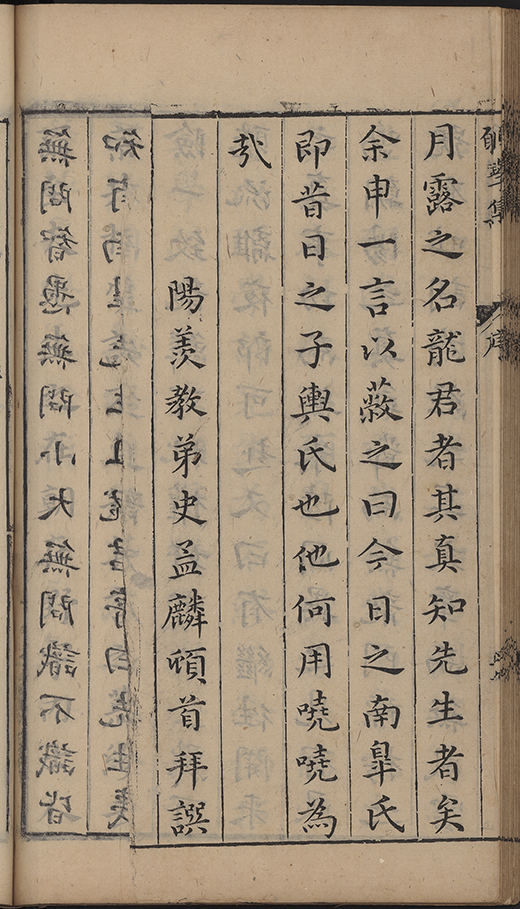 願學集
序
月露之名龍君者其真知先生者矣
余申一言以蔽之曰今日之南皐氏
即昔日之子輿氏也他何用嘵嘵為
哉
陽羨教弟史孟麟頓首拜譔
知有南皐先生
無問智愚無問小大無問識不識皆